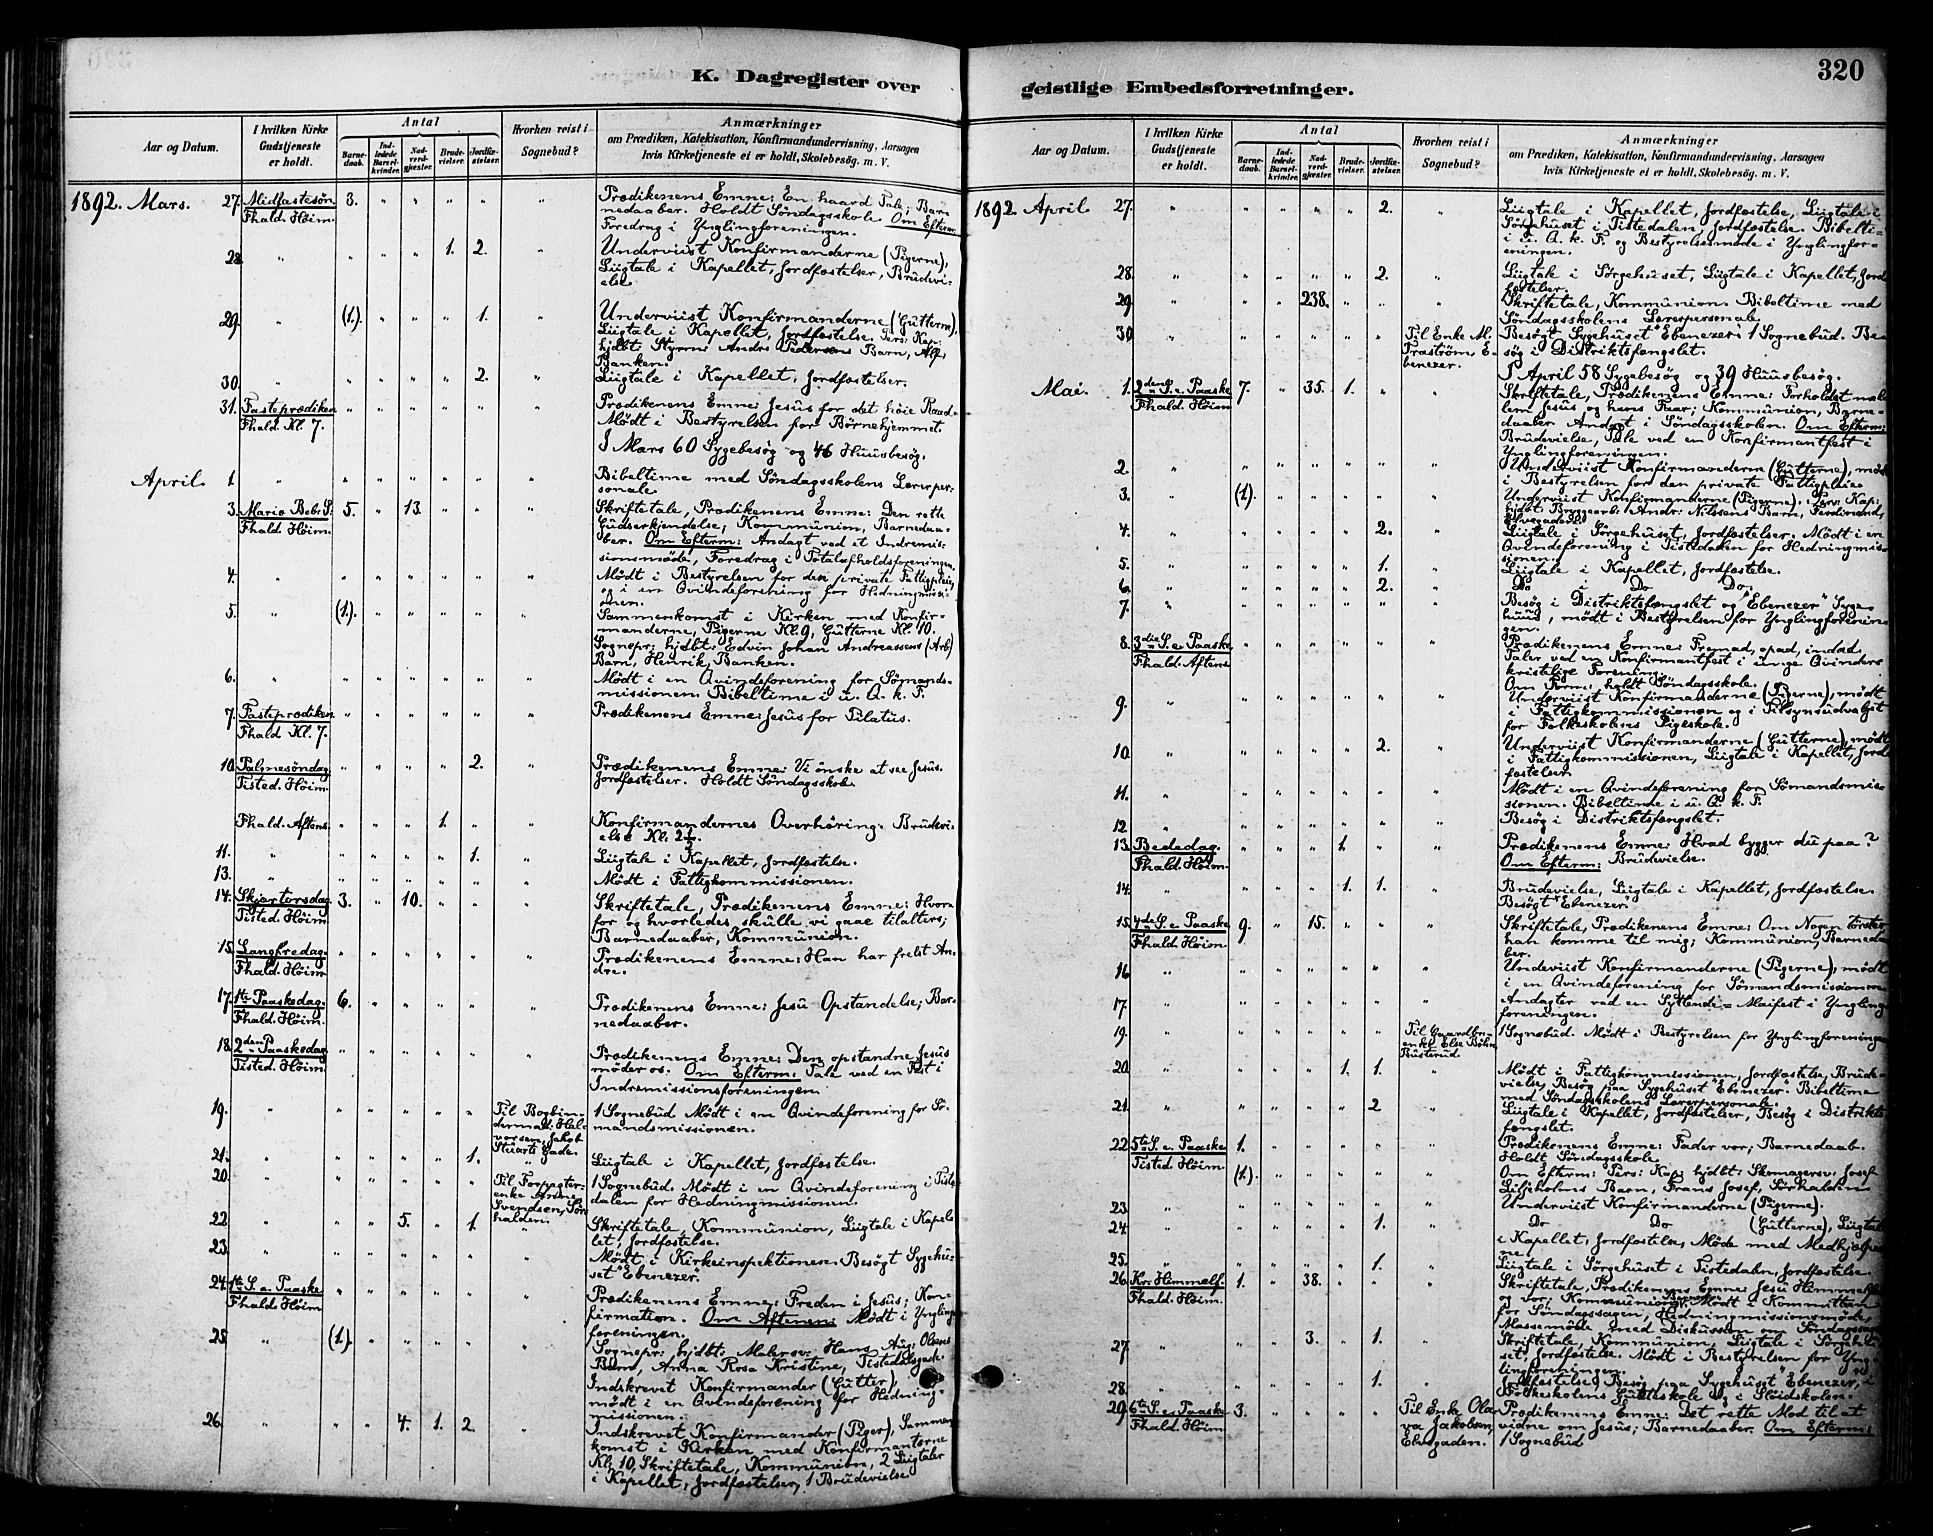 320
K. Dagregister over
geistlige Embedsforretninger.
Aar og Datum.
I hvilken Kirke
Gudstjeneste
er holdt.
Antal
Barne-
daab.
Ind-
ledede
Barsel-
kvinder.
Nad-
verd-
gjester.
Brude-
vielser.
Jordfæ-
stelser.
Hvorhen reist i
Sognebud?
Anmærkninger
om Prædiken, Katekisation, Konfirmandundervisning, Aarsagen
hvis Kirketjeneste ei er holdt, Skolebesøg. m. V.
1892. Mars. 27. Midfastesøn. 3. Prædikenens Emne: En haard Tale; Bar-
Fhald. Høim. nedaaber. Holdt Søndagsskole. Om Efterm:
Foredrag i Ynglingforeningen.
28. 1. 2. Underviist Konfirmanderne (Pigerne),
Liigtale i Kapellet, Jordfæstelser, Brudevi-
else
29. (1.) 1. Underviist Konfirmanderne (Gutterne),
Liigtale i Kapellet, Jordfæstelse. Pers: Kap:
hjdbt: Styrm: Andrs Pedersens Barn, Alf,
Banken.
30. 2. Liigtale i Kapellet, Jordfæstelser.
31. Fasteprædiken Prædikenens Emne: Jesus for det høie Raad.
Fhald. Kl. 7. Mødt i Bestyrelsen for Børnehjemmet.
I Mars 60 Sygebesøg og 46 Huusbesøg.
April. 1. Bibeltime med Søndagsskolens Lærerper-
sonale.
3. Mariæ Beb: S. 5. 13. Skriftetale, Prædikenens Emne: Den rette
Fhald. Høim. Gudserkjendelse, Kommunion, Barnedaa-
ber. Om Efterm: Andagt ved et Indremis-
sionsmøde, Foredrag i Totalafholdsforeningen.
4. Mødt i Bestyrelsen for den private Fattigpleie,
og i en Qvindeforening for Hedningmissi-
onen.
5. (1.) Sammenkomst i Kirken med Konfir-
manderne, Pigerne Kl. 9, Gutterne Kl. 10.
Sognepr: hjdbt: Edvin Johan Andreassens (Arb)
Barn, Henrik, Banken.
6. Mødt i en Qvindeforening for Sømands-
missionen. Bibeltime i u. Q. k. F.
7. Fasteprædiken Prædikenens Emne: Jesus for Pilatus.
Fhald Kl. 7.
10. Palmesøndag 2. Prædikenens Emne: Vi ønske at see Jesus.
Tisted. Høim. Jordfæstelser. Holdt Søndagsskole
Fhald. Aftens. 1. Konfirmandernes Overhøring. Brudevi-
else Kl. 2½.
11. 1. Liigtale i Kapellet, Jordfæstelse.
13. Mødt i Fattigkommissionen.
14. Skjærtorsdag 3. 10. Skriftetale, Prædikenens Emne: Hvor-
Tisted. Høim for og hvorledes skulle vi gaae tilalters;
Barnedaaber, Kommunion.
15. Langfredag. Prædikenens Emne: Han har frelst An-
Fhald. Høim dre.
17. 1ste Paaskedag. 6. Prædikenens Emne: Jesu Opstandelse; Bar-
Fhald. Høim. nedaaber.
18. 2den Paaskedag Prædikenens Emne: Den opstandne Jesus
Tisted. Høim møder os. Om Efterm: Tale ved en Fest i
Indremissionsforeningen.
19. Til Bogbin- 1 Sognebud Mødt i en Qvindeforening for Sø-
dermdl. Hal- mandsmissionen.
vorsen, Jakob
Stuarts Gade.
21. 1. Liigtale i Kapellet, Jordfæstelse.
20. Til Forpagter- 1 Sognebud. Mødt i en Qvindeforening i Tiste-
enke Svendsen, Sør- dalen for Hedningmissionen.
halden.
22. 5. 1. Skriftetale, Kommunion, Liigtale i Kapel-
let, Jordfæstelse.
23. Mødt i Kirkeinspektionen. Besøgt Sygehu-
set "Ebenezer".
24. 1ste S. e. Paaske Prædikenens Emne: Freden i Jesus; Kon-
Fhald. Høim firmation. Om Aftenen: Mødt i Yngling-
foreningen.
25. (1.) Sognepr: hjdbt: Malersv: Hans Aug: Olsens
Barn, Anna Rosa Kristine, Tistedalsgade.
Indskrevet Konfirmander (Gutter),
mødt i en Qvindeforening for Hedning-
missionen.
26. 4. 1. 2. Indskrevet Konfirmander (Piger), Sammen-
komst i Kirken med Konfirmanterne
Kl. 10, Skriftetale, Kommunion, 2 Liigtaler
i Kapellet, Jordfæstelser, 1 Brudevielse
Aar og Datum.
I hvilken Kirke
Gudstjeneste
er holdt.
Antal
Barne-
daab.
Ind-
ledede
Barsel-
kvinder.
Nad-
verd-
gjester.
Brude-
vielser.
Jordfæ-
stelser.
Hvorhen reist i
Sognebud?
Anmærkninger
om Prædiken, Katekisation, Konfirmandundervisning, Aarsagen
hvis Kirketjeneste ei er holdt, Skolebesøg. m. V.
1892. April 27. 2. Liigtale i Kapellet, Jordfæstelse, Liigtale i
Sørgehuset i Tistedalen, Jordfæstelse. Bibelti-
i u. Q. k. F. og Bestyrelsesmøde i Ynglingfor-
eningen.
28. 2. Liigtale i Sørgehuset, Liigtale i Kapellet, Jord
fæstelser.
29. 238. Skriftetale, Kommunion. Bibeltime med
Søndagsskolens Lærerpersonale
30. Til Enke M. Besøgt Sygehuset "Ebenezer" 1 Sognebud. Be-
Træström, E- søg i Distriktsfængslet.
benezer. I April 58 Sygebesøg og 39 Huusbesøg.
Mai. 1. 2den S. e. Paaske 7. 35. 1. Skriftetale, Prædikenens Emne: Forholdet mel-
Fhald. Høim lem Jesus og hans Faar; Kommunion, Barne-
daaber. Andagt i Søndagsskolen. Om Efterm:
Brudevielse, Tale ved en Konfirmantfest i
Ynglingforeningen.
2. Underviist Konfirmanderne (Gutterne), mødt
i Bestyrelsen for den private Fattigpleie
3. (1.) Underviist Konfirmanderne (Pigerne). Pers: Kap:
hjdbt: Bryggearb: Andr: Nilsens Barn, Ferdinand,
4. 2. Liigtale i Sørgehuset, Jordfæstelser. Mødt i en
Qvindeforening i Tistedalen for Hedningmis-
sionen.
5. 1. Liigtale i Kapellet, Jordfæstelse.
6. 2. Do i Do Do
7. Besøg i Distriktsfængslet og "Ebenezer" Syge-
huus, mødt i Bestyrelsen for Ynglingforenin-
gen.
8. 3die S. e. Paaske Prædikenens Emne: Fremad, opad, indad.
Fhald. Aftens Taler ved en Konfirmantfest i unge Qvinders
kristelige Forening.
Om Form: holdt Søndagsskole.
9. Underviist Konfirmanderne (Pigerne), mødt
i Fattigkommissionen og i Tilsynsudvalget
for Folkeskolens Pigeskole.
10. 2. Underviist Konfirmanderne (Gutterne), mødt
i Fattigkommissionen, Liigtale i Kapellet, Jord
fæstelser.
11. Mødt i en Qvindeforening for Sømandsmis-
sionen. Bibeltime i u. Q. k. F.
12. Besøg i Distriktsfængslet.
13. Bededag. 1. Prædikenens Emne: Hvad bygger du paa?
Fhald. Høim. Om Efterm: Brudevielse.
14. 1. 1. Brudevielse, Liigtale i Kapellet, Jordfæstelse.
Besøgt "Ebenezer".
15. 4de S. e. Paaske 9. 15. Skriftetale, Prædikenens Emne: Om Nogen tørster
Fhald. Høim han komme til mig; Kommunion, Barnedaa-
ber.
16. Undeviist Konfirmanderne (Pigerne), mødt
i en Qvindeforening for Sømandsmissionen
17. Andagter ved en Syttende-Maifest i Yngling-
foreningen.
19. Til Gaardbr- 1 Sognebud. Mødt i Bestyrelsen for Ynglingforeningen
enke Else Bøhn
Busterud.
20. 1. 1. Mødt i Fattigkommissionen, Jordfæstelse, Brude-
vielse, Besøg paa Sygehuset "Ebenezer". Bibeltime
med Søndagsskolens Lærerpersonale.
21. 2 Liigtale i Kapellet, Jordfæstelser, Besøg i Distrikts-
fængslet.
22. 5te S. e. Paaske 1. Prædikenens Emne: Fader vor; Barnedaab.
Tisted. Høim. Holdt Søndagsskole
(1.) Om Efterm: Pers: Kap: hjdbt: Skomagersv: Josef
Liljeholms Barn, Frans Josef, Sørhalden
23. Underviist Konfirmanderne (Pigerne).
24. 1. Do Do (Gutterne), Liigtale
i Kapellet, Jordfæstelse, Møde med Medhjælper-
ne.
25. 1. Liigtale i Sørgehuset i Tistedalen, Jordfæstelse.
26. Kr. Himmelf. 1. 38. Skriftetale, Prædikenens Emne: Jesu Himmelfart
Fhald. Høim. og vor; Kommunion, Barned: Mødt i Kommitteen
for Søndagssagen, Hedningmissionsmøde,
Massemøde med Diskussion om Søndagssagen
27. 3. 1. Skriftetale, Kommunion, Liigtale i Sørgehu-
set, Jordfæstelse. Mødt i Bestyrelsen for Yng-
lingforeningen.
28. 1. Jordfæstelse, Besøg paa Sygehuset "Ebenezer", i
Folkeskolens Gutteskole og i Sløidskolen.
29. 6te S. e. Paaske 3. Til Enke Ola- Prædikenens Emne: Det rette Mod til at
Fhald. Høim va Jakobsen, vidne om Jesus; Barnedaaber. Om Efterm:
Elvegaden. 1 Sognebud